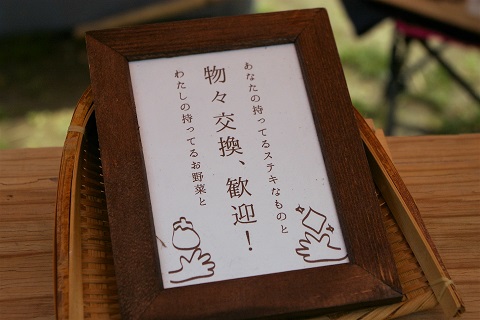 あなたの持ってるステキなものと
物々交換、歓迎！
わたしの持ってるお野菜と